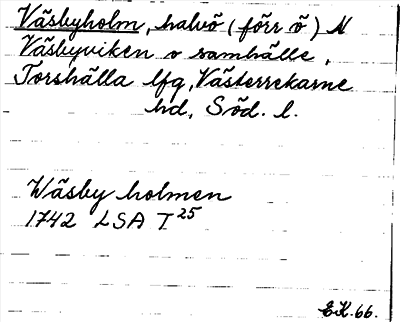 Väsbyholm, halvö (förr ö) N
Väsbyviken o samhälle,
Torshälla lfg, Västerrekarne
hd, Söd. l.
Wäsby holmen
1742 LSA T 25
EK.66.